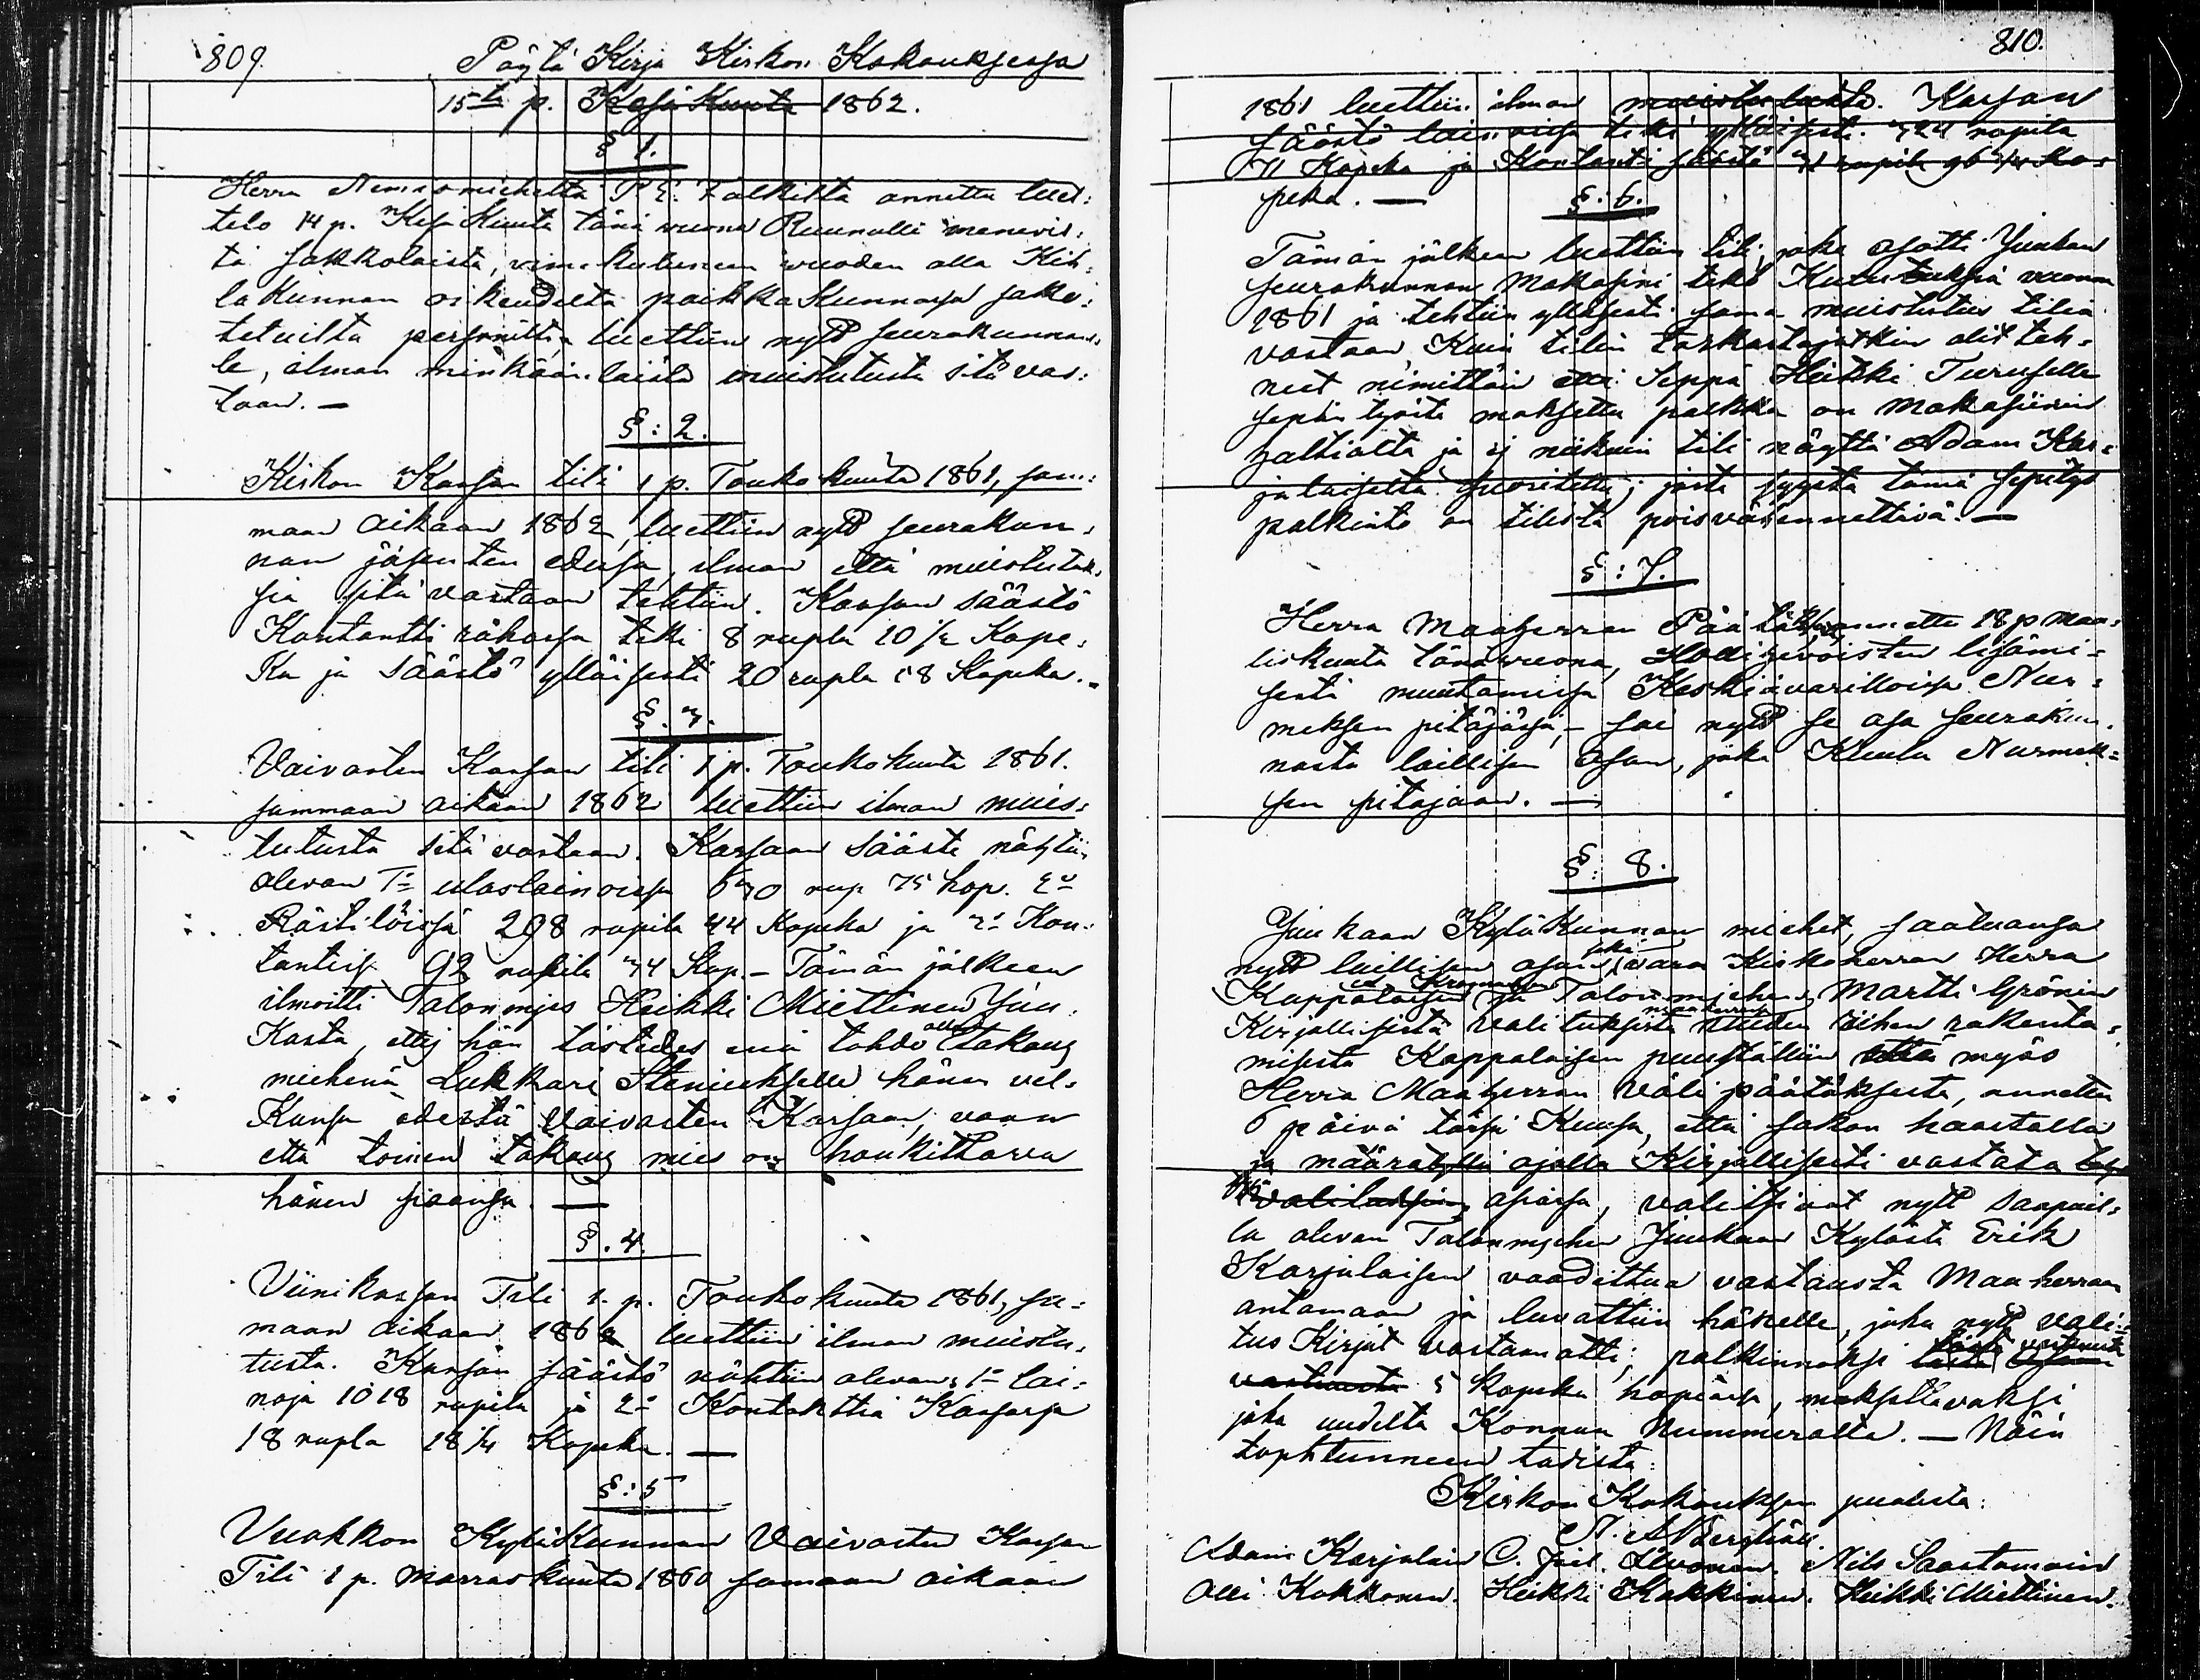 809.
Pöytä Kirja Kirkon Kokouksesa
15ta p. Kesä Kuuta 1862.
§ 1.
Herra Nimismieheltä Falkilta annettu luet:
telo 14 p. Kesä Kuuta tänä vuonna Ruunulle menevis:
tä sakkoloista, viime kuluneen vuoden alla Kih:
la Kunnan oikeudelta paikka Kunnasa sako:
tetuilta personilta, luettiin nytt seurakunnan:
le, ilman minkään laista muistutusta sitä vas:
taan. —
§: 2.
Kirkon Kassan tili 1 p. Toukokuuta 1861, sam:
maan aikaan 1862, luettiin nytt seurakun:
nan jäsenten edesä, ilman että muistutuk:
sia sitä vastaan tehtiin. Kassan säästö
Kontantti rahassa teki 8 rupla 10 1/2 Kope:
Ka ja säästö ylläisesti 20 rupla 58 Kopeka. -
§. 3.
Vaivasten Kassan tili 1 p. Toukokuuta 1861.
sammaan aikaan 1862 luettiin ilman muis:
tutusta sitä vastaan. Kassaan säästö nähtiin
olevan 1= uloslainoissa 630 rup 75 kop. 2=
Rästilöissä 298 rupila 44 Kopeka ja 3= Kon:
tantissa 92 rupila 34 Kop. - Tämän jälkeen
ilmoitti Talonmjes Heikki Miettinen Juu:
Kasta, ettej hän tästedes enä tahdo olla takaus
miehenä Lukkari Steniukselle hänen vel:
Kansa edestä Vaivasten Kassaan, vaan
että toinen takaus mies on hankittava
hänen siaansa. —
§. 4.
Viinikassan Tili 1. p. Toukokuuta 1861, sa:
maan aikaan 1862 luettiin ilman muistu:
tusta. Kassan säästö nähtiin olevan, 1= lai:
noja 1018 rupila ja 2= Kontanttia Kassassa
18 rupla 18 1/4 Kopeka. —
§: 5
Vuokkon KyläKunnan Vaivasten Kassan
Tili 1 p. Marraskuuta 1860 samaan aikaan
810.
1861 luettiin ilman muistutusta. Kassan
säästö lainoissa teki ylläisesti 324 rupila
71 Kopeka ja Kontanti säästö 31 rupila 96 3/4 Ko:
peka. —
§: 6.
Tämän jälkeen luettiin tili, joka osotti Juukan
seurakunnan Makasini teko Kulutuksia vuonna
1861 ja tehtiin ylläisesti sama muistutus tiliä
vastaan, Kuin tilin tarkastajatkin olit teh:
neet nimittäin että Seppä Heikki Turuselle
sepän työstä maksettu palkka on Makasiinin
haltialta ja ej niikuin tili näyttä Adam Kar:
jalaiselta suoritettu; josta syystä tämä sepitys
palkinto on tilistä poisvähennettävä. —
§: 7.
Herra Maaherran Päätöksen, annettu 18 p Maa:
liskuuta tänävuona, Hollihevoisten lisämi:
sestä muutamissa Keskiavarilloissa Nur:
meksen pitäjäsä, - sai nytt se osa seurakun:
nasta laillisen osan, joka Kuulu Nurmek:
sen pitäjään. —
§: 8.
Juukaan KyläKunnan miehet, saatuansa
nytt laillisen osan sekä vara Kirkkoherran Herra
Kappalaisen ja Talonmjehen Martti Grönin
Kirjallisista valituksista uuden riihen rakenta:
misesta Kappalaisen puuställiin että myös
Herra Maaherran väli päätöksestä, annettu
6 päivä tässä Kuusa, että sakon haastolla
ja määrätyllä ajalla Kirjallisesti vastata
valituksiin asiasa, valitsivat nytt saapuil:
la olevan Talonmjehen Juukaan Kylästä Erik
Karjalaisen vaadittua vastausta Maaherraan
antamaan ja luvattiin hänelle, joka nytt vali:
tus Kirjat vastaanotti; palkinnoksi tästä vastausta
vastausta 5 kopeka hopiasa, maksettavaksi
joka uudelta Konnun Nummeralta. — Näin
tapahtunneen todista:
Kirkon Kokouksen puolesta:
Adam Karjalain Nils Saastamoin
Olli Kokkonen. Heikki Kokkinen. Heikki Miettinen.